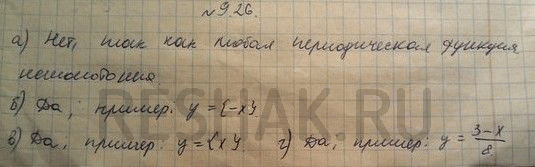 №9.26.
а) Нет, так как любая периодическая функция
немонотонна.
б) Да; пример: y = {-x}
в) Да, пример: y = {x}. г) Да; пример: y = \frac{3-x}{8}
RESHAK.RU